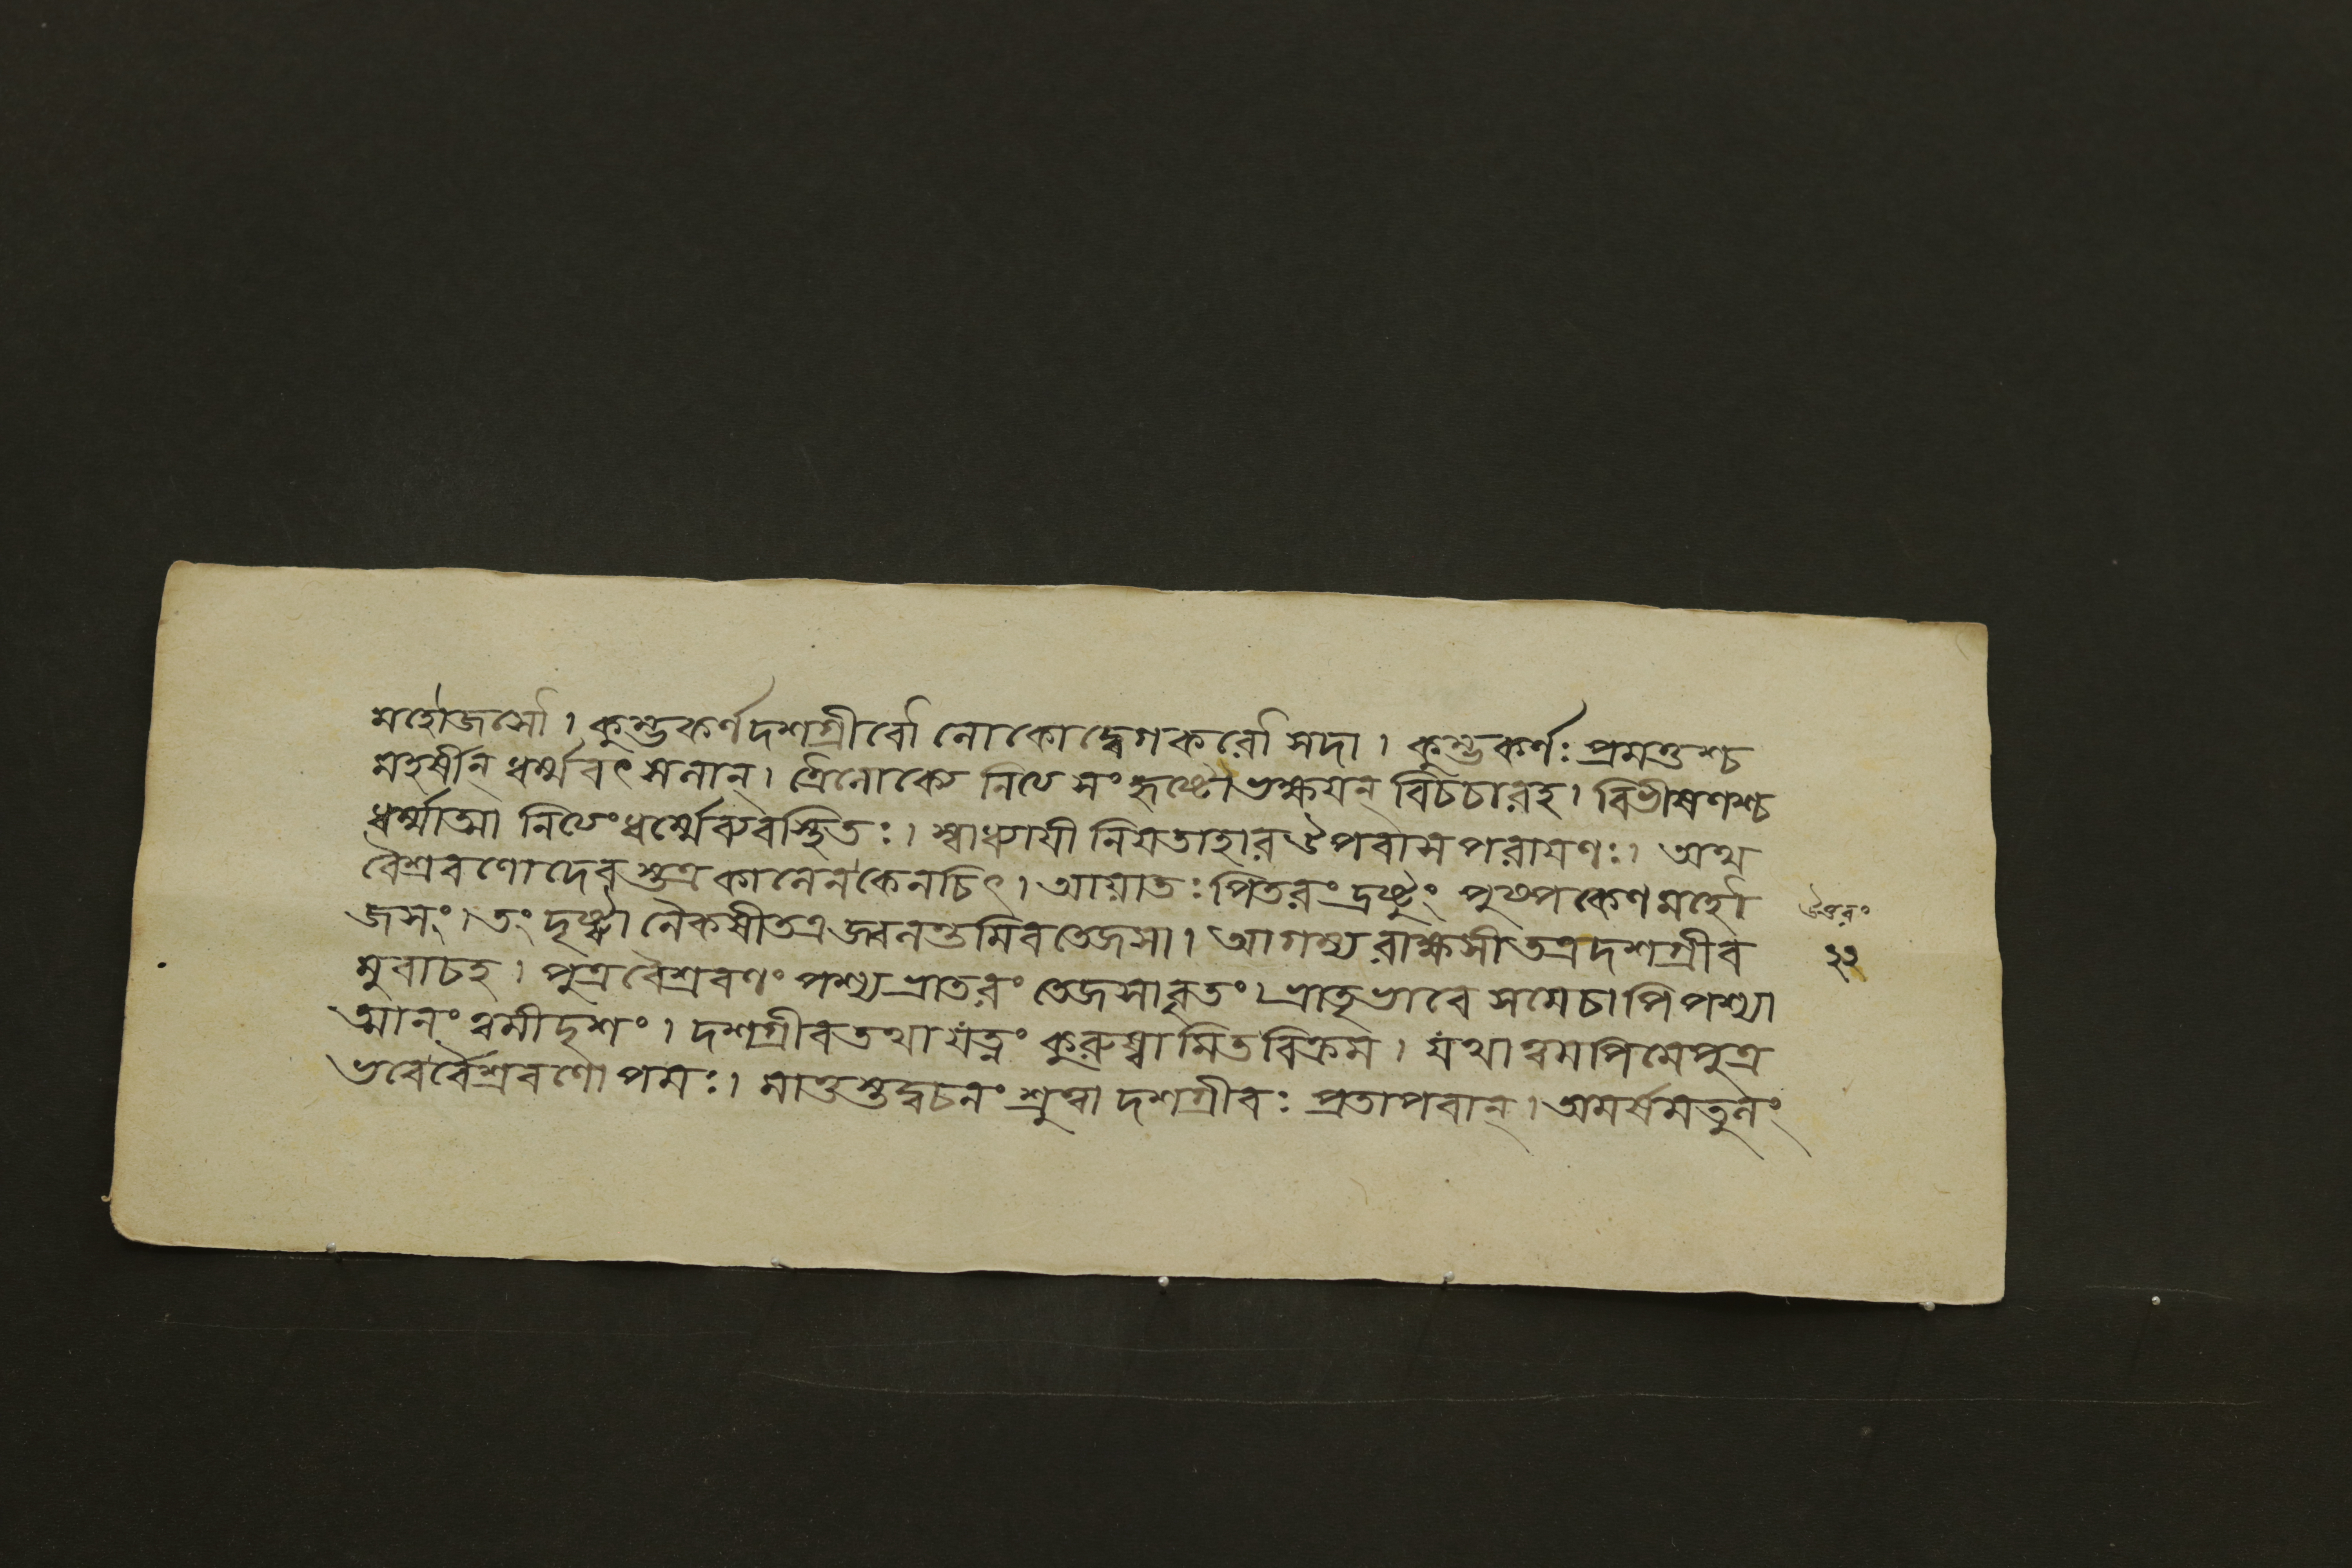 মহৌজসৌ। কুম্ভকর্ণদশগ্রীবৌ লোকোদ্বেগকরৌ সদা। কুম্ভকর্ণঃ প্রমত্তশ্চ
মহর্ষীন্ ধর্ম্মবৎসলান্। ত্রৈলোক্যে নিত্যসংহৃষ্টো ভক্ষয়ন্ বিচচারহ। বিভীষণশ্চ
ধর্ম্মাত্মা নিত্যংধর্ম্মেব্যবস্থিতঃ। স্বাধ্যায়ী নিয়তাহারউপবাসপরায়ণঃ। অথ
বৈশ্রবণোদেবস্তত্রকালেনকেনচিৎ। আয়াতঃ পিতরংদ্রষ্টুং পুষ্পকেণমহৌ
জসং। তং দৃষ্ট্বা নৈকষীতত্রজ্বলন্তমিবতেজসা। আগম্যরাক্ষসীতত্রদশগ্রীব
মুবাচহ। পুত্রবৈশ্রবণং পশ্যভ্রাতরং তেজসাবৃতং। ভ্রাতৃভাবে সমেচাপিপশ্যা
ত্মানং ত্বমীদৃশং। দশগ্রীবতথাযত্নং কুরুষ্বামিতবিক্রম। যথাত্বমপিমেপুত্র
ভবের্বৈশ্রবণোপমঃ। মাতুস্তদ্বচনং শ্রুত্বা দশগ্রীবঃ প্রতাপবান্। অমর্ষমতুলং
উত্তরং
২২